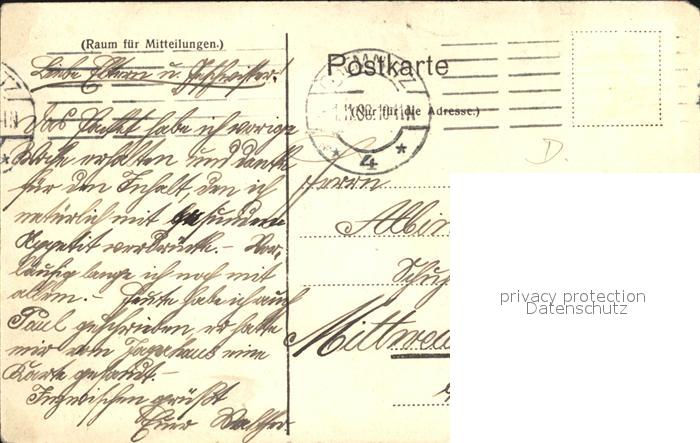 (Raum für Mitteilungen.)
Liebe Eltern u. Geschwister!
Das Packet habe ich vorige
Woche erhalten und danke
für den Inhalt, den ich
natürlich mit gesundem
Appetit verdrückte. – Vor-
läufig lange ich noch mit
allem. – Heute habe ich auch
Paul geschrieben, er hatte
mir vom Jagdhaus eine
Karte gesandt. –
Inzwischen grüßt
Euer Walther.
Postkarte
(Nur für die Adresse.)
4
D.
Herrn
Albin
Mittwei
privacy protection
Datenschutz